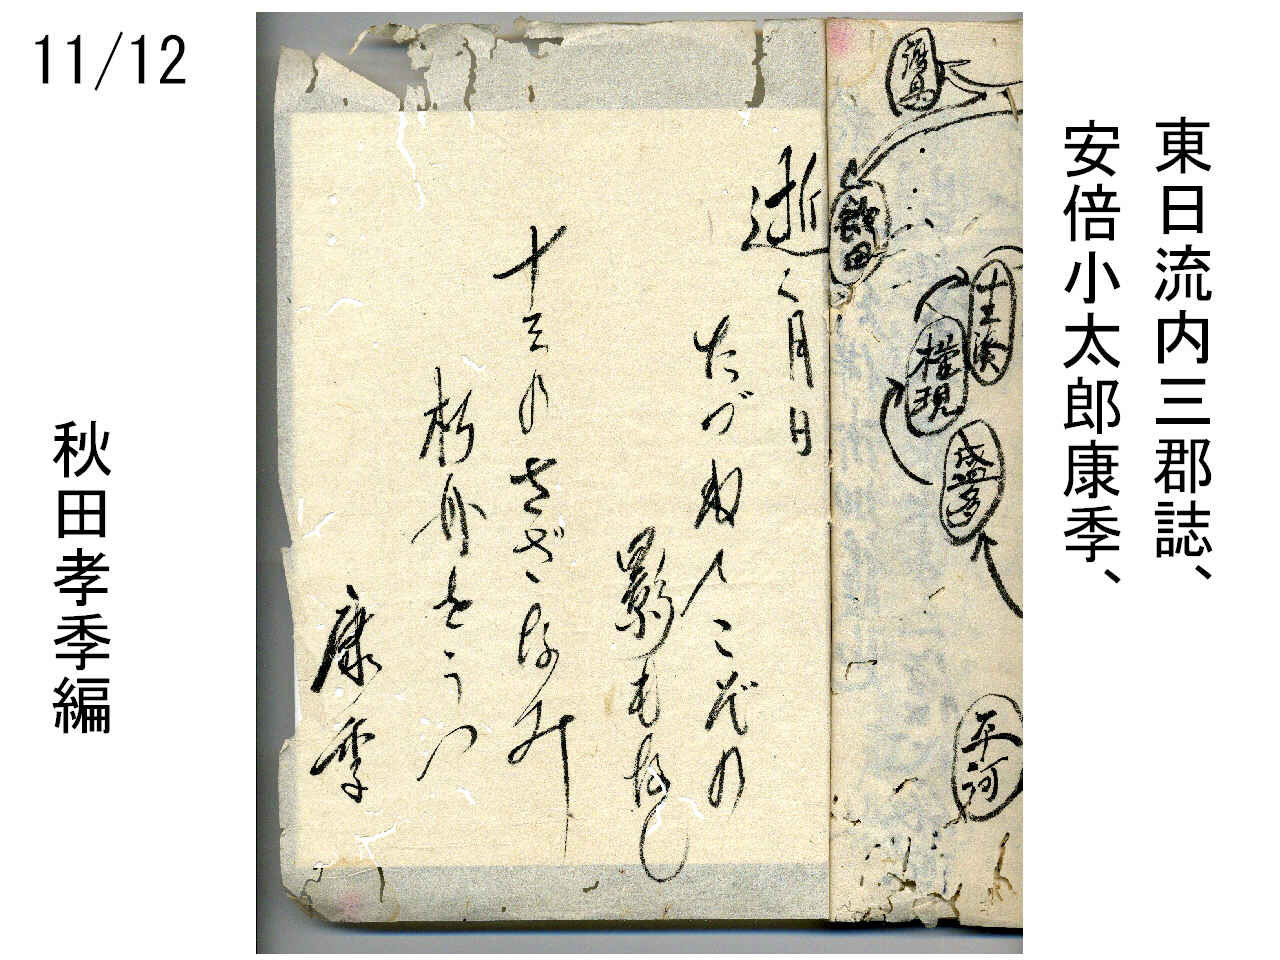 11/12
東日流内三郡誌、
安倍小太郎康季、
飯田
十三湊
権現
盛
平河
逝く月日
たづぬれどの
影もなし
十三のさざなみ
舟をうつ
康季
秋田孝季編